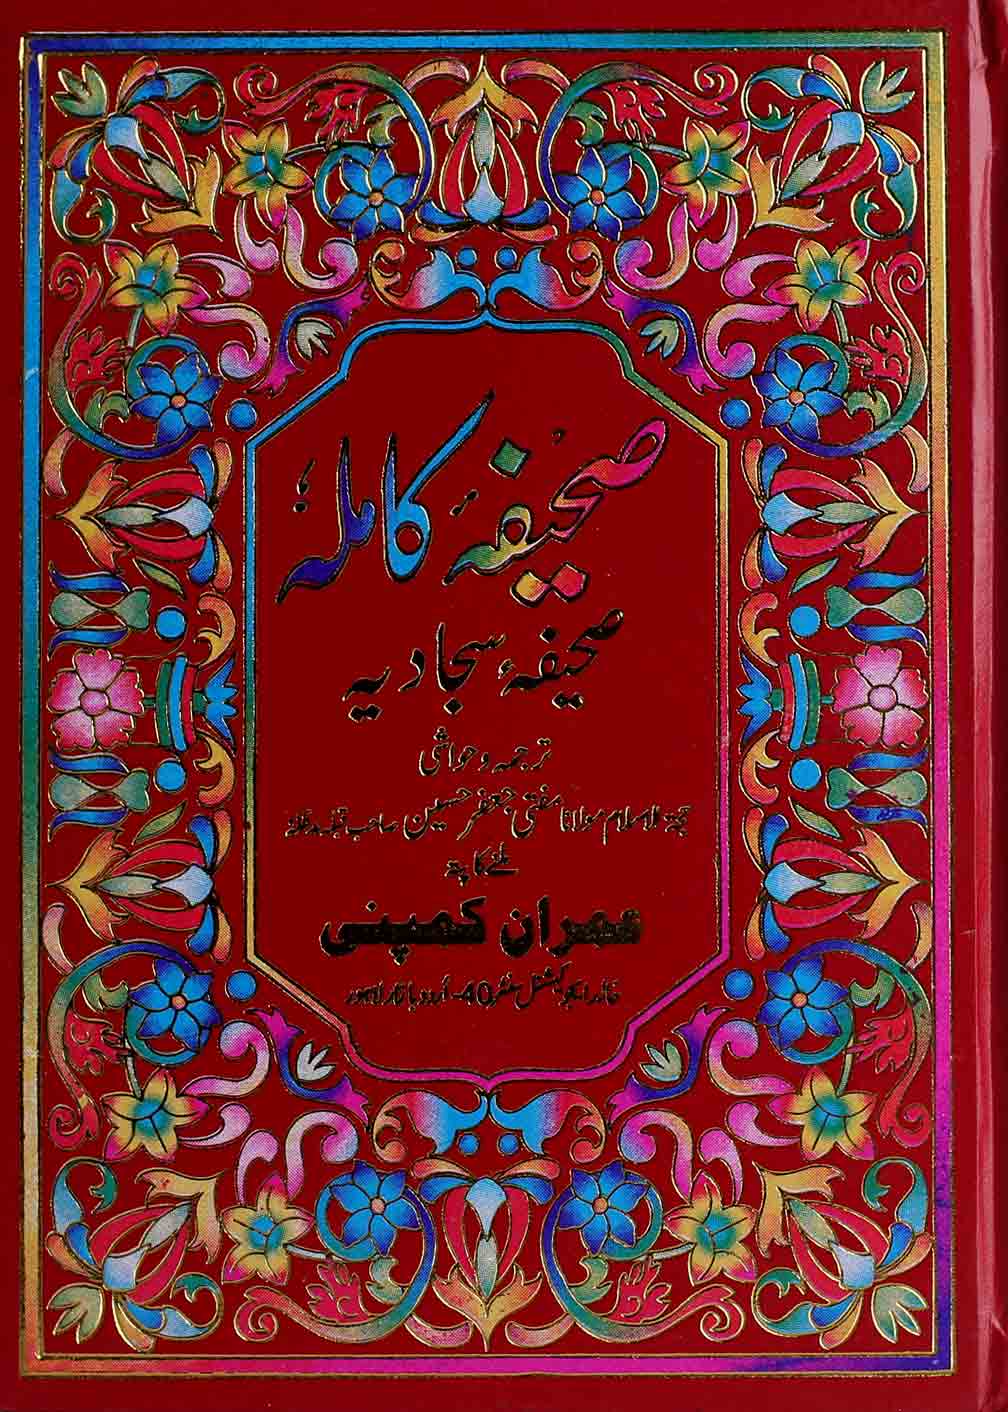 صحیفۂ کاملہ
صحیفۂ سجادیہ
ترجمہ و حواشی
حجۃ الاسلام مولانا مفتی جعفر حسین صاحب قبلہ مدظلہ
ملنے کا پتہ
عمران کمپنی
خالد ایجوکیشنل سنٹر 40-اردو بازار لاہور